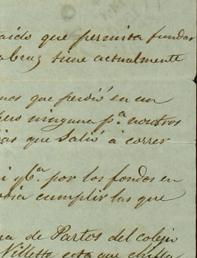 aido que permita fundar
abruz tiene actualmente
nes que perdió en un
ninguna pª nosotros
ias que Salió á correr
i gᵗª por los fondos en
dia cumplir las que
ra de Partos del colejio
Villette esta que